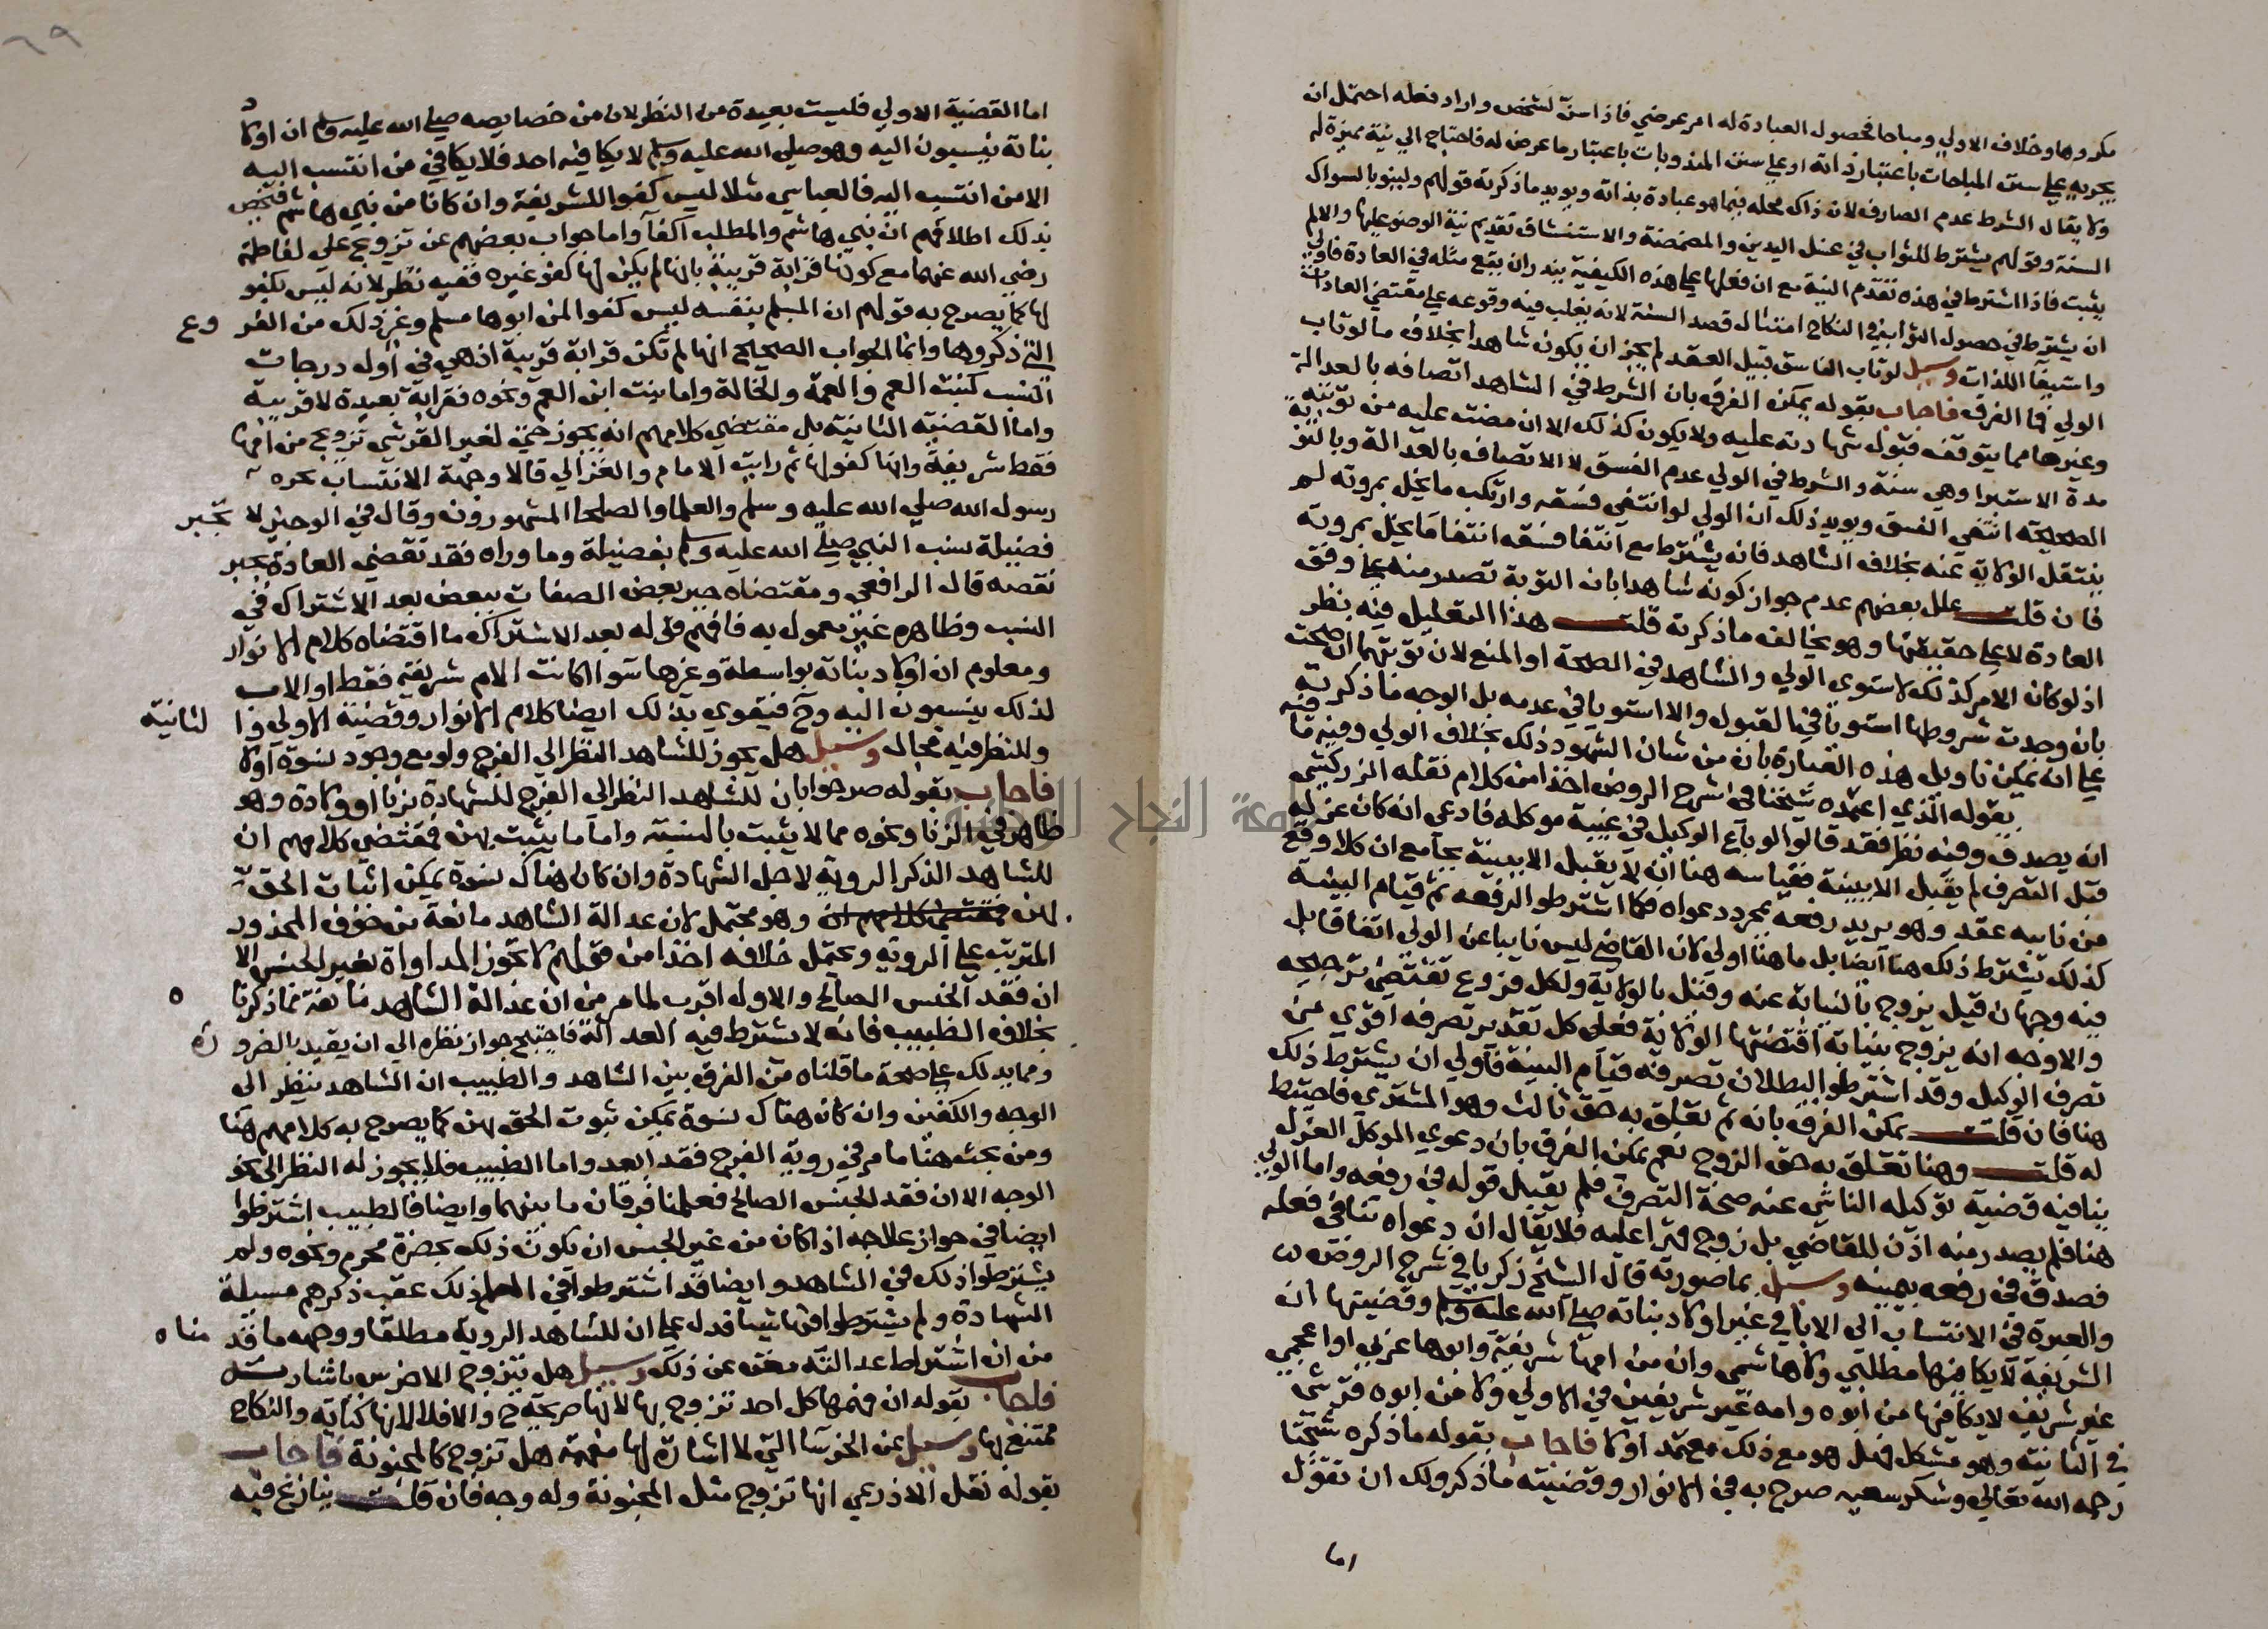 مكروها وخلاف الاولي ومباحا فحصول العبادة له امر عرضي فاذا سن لشخص واراد فعله احتمل ان
يجريه علي سنن المباحات باعتبار ذاته او علي سنن المندوبات باعتبار ما عرض له فاحتاج الي نية مميزة له
ولا يقال الشرط عدم الصارف لان ذاك محله فيما هو عبادة بذاته ويويد ما ذكرته قولهم ولينو بالسواك
السنة وقولهم يشترط للثواب في غسل اليدين والمضمضة والاستنشاق تقديم نية الوضو عليها والا لم
يثبت فاذا اشترط في هذه تقدم النية مع ان فعلها علي هذه الكيفية يندر ان يقع مثله في العادة فاولي
ان يشترط في حصول الثواب في النكاح امتثال قصد السنة لانه يغلب فيه وقوعه علي مقتضي العادات
واستيفا اللذات وسيل لو تاب الفاسق قبيل العقد لم يجز ان يكون شاهدا بخلاف ما لو تاب
الولي فما الفرق فاجاب بقوله يمكن الفرق بان الشرط في الشاهد اتصافه بالعدالة
وغيرها مما يتوقف قبول شهادته عليه ولا يكون كذلك الا ان مضت عليه من توبته
مدة الاستبرا وهي سنة والشرط في الولي عدم الفسق لا الاتصاف بالعدالة وبالتوبة
الصحيحة انتفي الفسق ويويد ذلك ان الولي لو انتفي فسقه وارتكب ما يخل بمروته لم
ينتقل الولاية عنه بخلاف الشاهد فانه يشترط مع انتفا فسقه انتفا ما يخل بمروته
فان قلت علل بعضهم عدم جواز كونه شاهدا بان التوبة تصدر منه علي وفق
العادة لا علي حقيقتها وهو يخالف ما ذكرته قلت هذا التعليل فيه نظر
اذ لو كان الامر كذلك لاستوي الولي والشاهد في الصحة او المنع لان توبتهما ان صحت
بان وجدت شروطها استويا في القبول والا استويا في عدمه بل الوجه ما ذكرته
علي انه يمكن تاويل هذه العبارة بان من شان الشهود ذلك بخلاف الولي وفيه ما فيه
بقوله الذي اعتمده شيخنا في شرح الروض اخذا من كلام نقله الزركشي
انه يصدق وفيه نظر فقد قالوا لو باع الوكيل في غيبة موكله فادعي انه كان عزله
قبل التصرف لم يقبل الا ببينة فقياسه هنا انه لا يقبل الا ببينة بجامع ان كلا وقع
من نايبه عقد وهو يريد رفعه بمجرد دعواه فكما اشترطوا لرفعه ثم قيام البينة
كذلك يشترط ذلك هنا ايضا بل ما هنا اولي لان القاضي ليس نايبا عن الولي اتفاقا بل
فيه وجهان قيل يزوج بالنيابة عنه وقيل بالولاية ولكل فروع تقتضي ترجيحه
والاوجه انه يزوج بنيابة اقتضتها الولاية فعلي كل تقدير تصرفه اقوي من
تصرف الوكيل وقد اشترطوا لبطلان تصرفه قيام البينة فاولي ان يشترط ذلك
هنا فان قلت يمكن الفرق بانه ثم تعلق به حق ثالث وهو المشتري فاحتيط
له قلت وهنا تعلق به حق الزوج نعم يمكن الفرق بان دعوي الموكل العزل
ينافيه قضية توكيله الناشي عنه صحة التصرف فلم يقبل قوله في رفعه واما الولي
هنا فلم يصدر منه اذن للقاضي بل زوج قهرا عليه فلا يقال ان دعواه تنافي فعله
فصدق في رفعه بيمينه وسيل بما صورته قال الشيخ زكريا في شرح الروض
والعبرة في الانتساب الي الابا في غير اولاد بناته صلي الله عليه وسلم وقضيتها ان
الشريفة لا يكافيها مطلبي ولا هاشمي وان من امها شريفة وابوها عربي او اعجمي
غير شريف لا يكافيها من ابوه وامه غير شريفين في الاولي ولا من ابوه قرشي
في الثانية وهو مشكل فهل هو مع ذلك معتمد او لا فاجاب بقوله ما ذكره شيخنا
رحمه الله تعالي وشكر سعيه صرح به في الانوار وقضيته ما ذكر ولك ان تقول
اما
اما القضية الاولي فليست بعيدة من النظر لان من خصايصه صلي الله عليه وسلم ان اولاد
بناته ينسبون اليه وهو صلي الله عليه وسلم لا يكافيه احد فلا يكافي من انتسب اليه
الا من انتسب اليه فالعباسي مثلا ليس كفوا للشريفة وان كانا من بني هاشم فتخص
بذلك اطلاقهم ان بني هاشم والمطلب اكفآ واما جواب بعضهم عن تزويج علي لفاطمة
رضي الله عنهما مع كونها قرابة قريبة بانها لم يكن لها كفو غيره ففيه نظر لانه ليس بكفو
لها كما يصرح به قولهم ان المسلم بنفسه ليس كفوا لمن ابوها مسلم وغير ذلك من الفروع
التي ذكروها وانما الجواب الصحيح انها لم تكن قرابة قريبة اذ هي في اول درجات
النسب كبنت العم والعمة والخالة واما بنت ابن العم ونحوه فقرابة بعيدة لا قريبة
واما القضية الثانية بل مقتضي كلامهم انه يجوز حتي لغير القرشي تزويج من امها
فقط شريفة وانها كفو لها ثم رايت الامام والغزالي قالا وجهة الانتساب بحره
رسول الله صلي الله عليه وسلم والعلما والصلحا المشهورون وقال في الوجيز لا تجبر
فضيلة نسب النبي صلي الله عليه وسلم بفضيلة وما وراه فقد تقضي العادة بجبر
نقصه قال الرافعي ومقتضاه جبر بعض الصفات ببعض بعد الاشتراك في
النسب وظاهره غير معمول به فافهم قوله بعد الاشتراك ما اقتضاه كلام الانوار
ومعلوم ان اولاد بناته بواسطة وغيرها سوا اكانت الام شريفة فقط او الاب
لذلك ينسبون اليه وح فيقوي بذلك ايضا كلام الانوار وقضيته الاولي والثانية
وللنظر فيه مجال وسيل هل يجوز للشاهد النظر الي الفرج ولو مع وجود نسوة اولا
فاجاب بقوله صرحوا بان للشاهد النظر الي الفرج للشهادة بزنا او ولادة وهو
ظاهر في الزنا ونحوه مما لا يثبت بالنسبة واما ما يثبت بهن فمقتضي كلامهم ان
للشاهد الذكر الروية لاجل الشهادة وان كان هناك نسوة يمكن اثبات الحق
بهن وهو محتمل لان عدالة الشاهد مانعة من خوف المحذور
المترتب علي الروية ويحتمل خلافه اخذا من قولهم لا تجوز المداواة لغير الجنس الا
ان فقد الجنس الصالح والاول اقرب لما مر من ان عدالة الشاهد مانعة مما ذكرناه
بخلاف الطبيب فانه لا يشترط فيه العدالة فاحتيج جواز نظره الي ان يقيد بالضرورة
ومما يدلك علي صحة ما قلناه من الفرق بين الشاهد والطبيب ان الشاهد ينظر الي
الوجه والكفين وان كان هناك نسوة يمكن ثبوت الحق بهن كما يصرح به كلامهم هنا
ومن بحث هنا ما مر في روية الفرج فقد ابعد واما الطبيب فلا يجوز له النظر الي نحو
الوجه الا ان فقد الجنس الصالح فعلمنا فرقان ما بينهما وايضا فالطبيب اشترطوا
ايضا في جواز علاجه اذا كان من غير الجنس ان يكون ذلك بحضرة محرم ونحوه ولم
يشترطوا ذلك في الشاهد وايضا قد اشترطوا في المعلم ذلك عقب ذكرهم مسيلة
الشهادة ولم يشترطوا فيها شيا فدل علي ان للشاهد الروية مطلقا ووجهه ما قدمناه
من ان اشتراط عدالته مغن عن ذلك وسيل هل يتزوج الاخرس باشارته
فاجاب بقوله ان فهمها كل احد تزوج بها لانها صريحة ح والا فلا لانها كناية والنكاح
ممتنع بها وسيل عن الخرسا التي لا اشارة لها مفهمة هل تزوج كالمجنونة فاجاب
بقوله نقل الاذرعي انها تزوج مثل المجنونة وله وجه فان قلت ينازع فيه